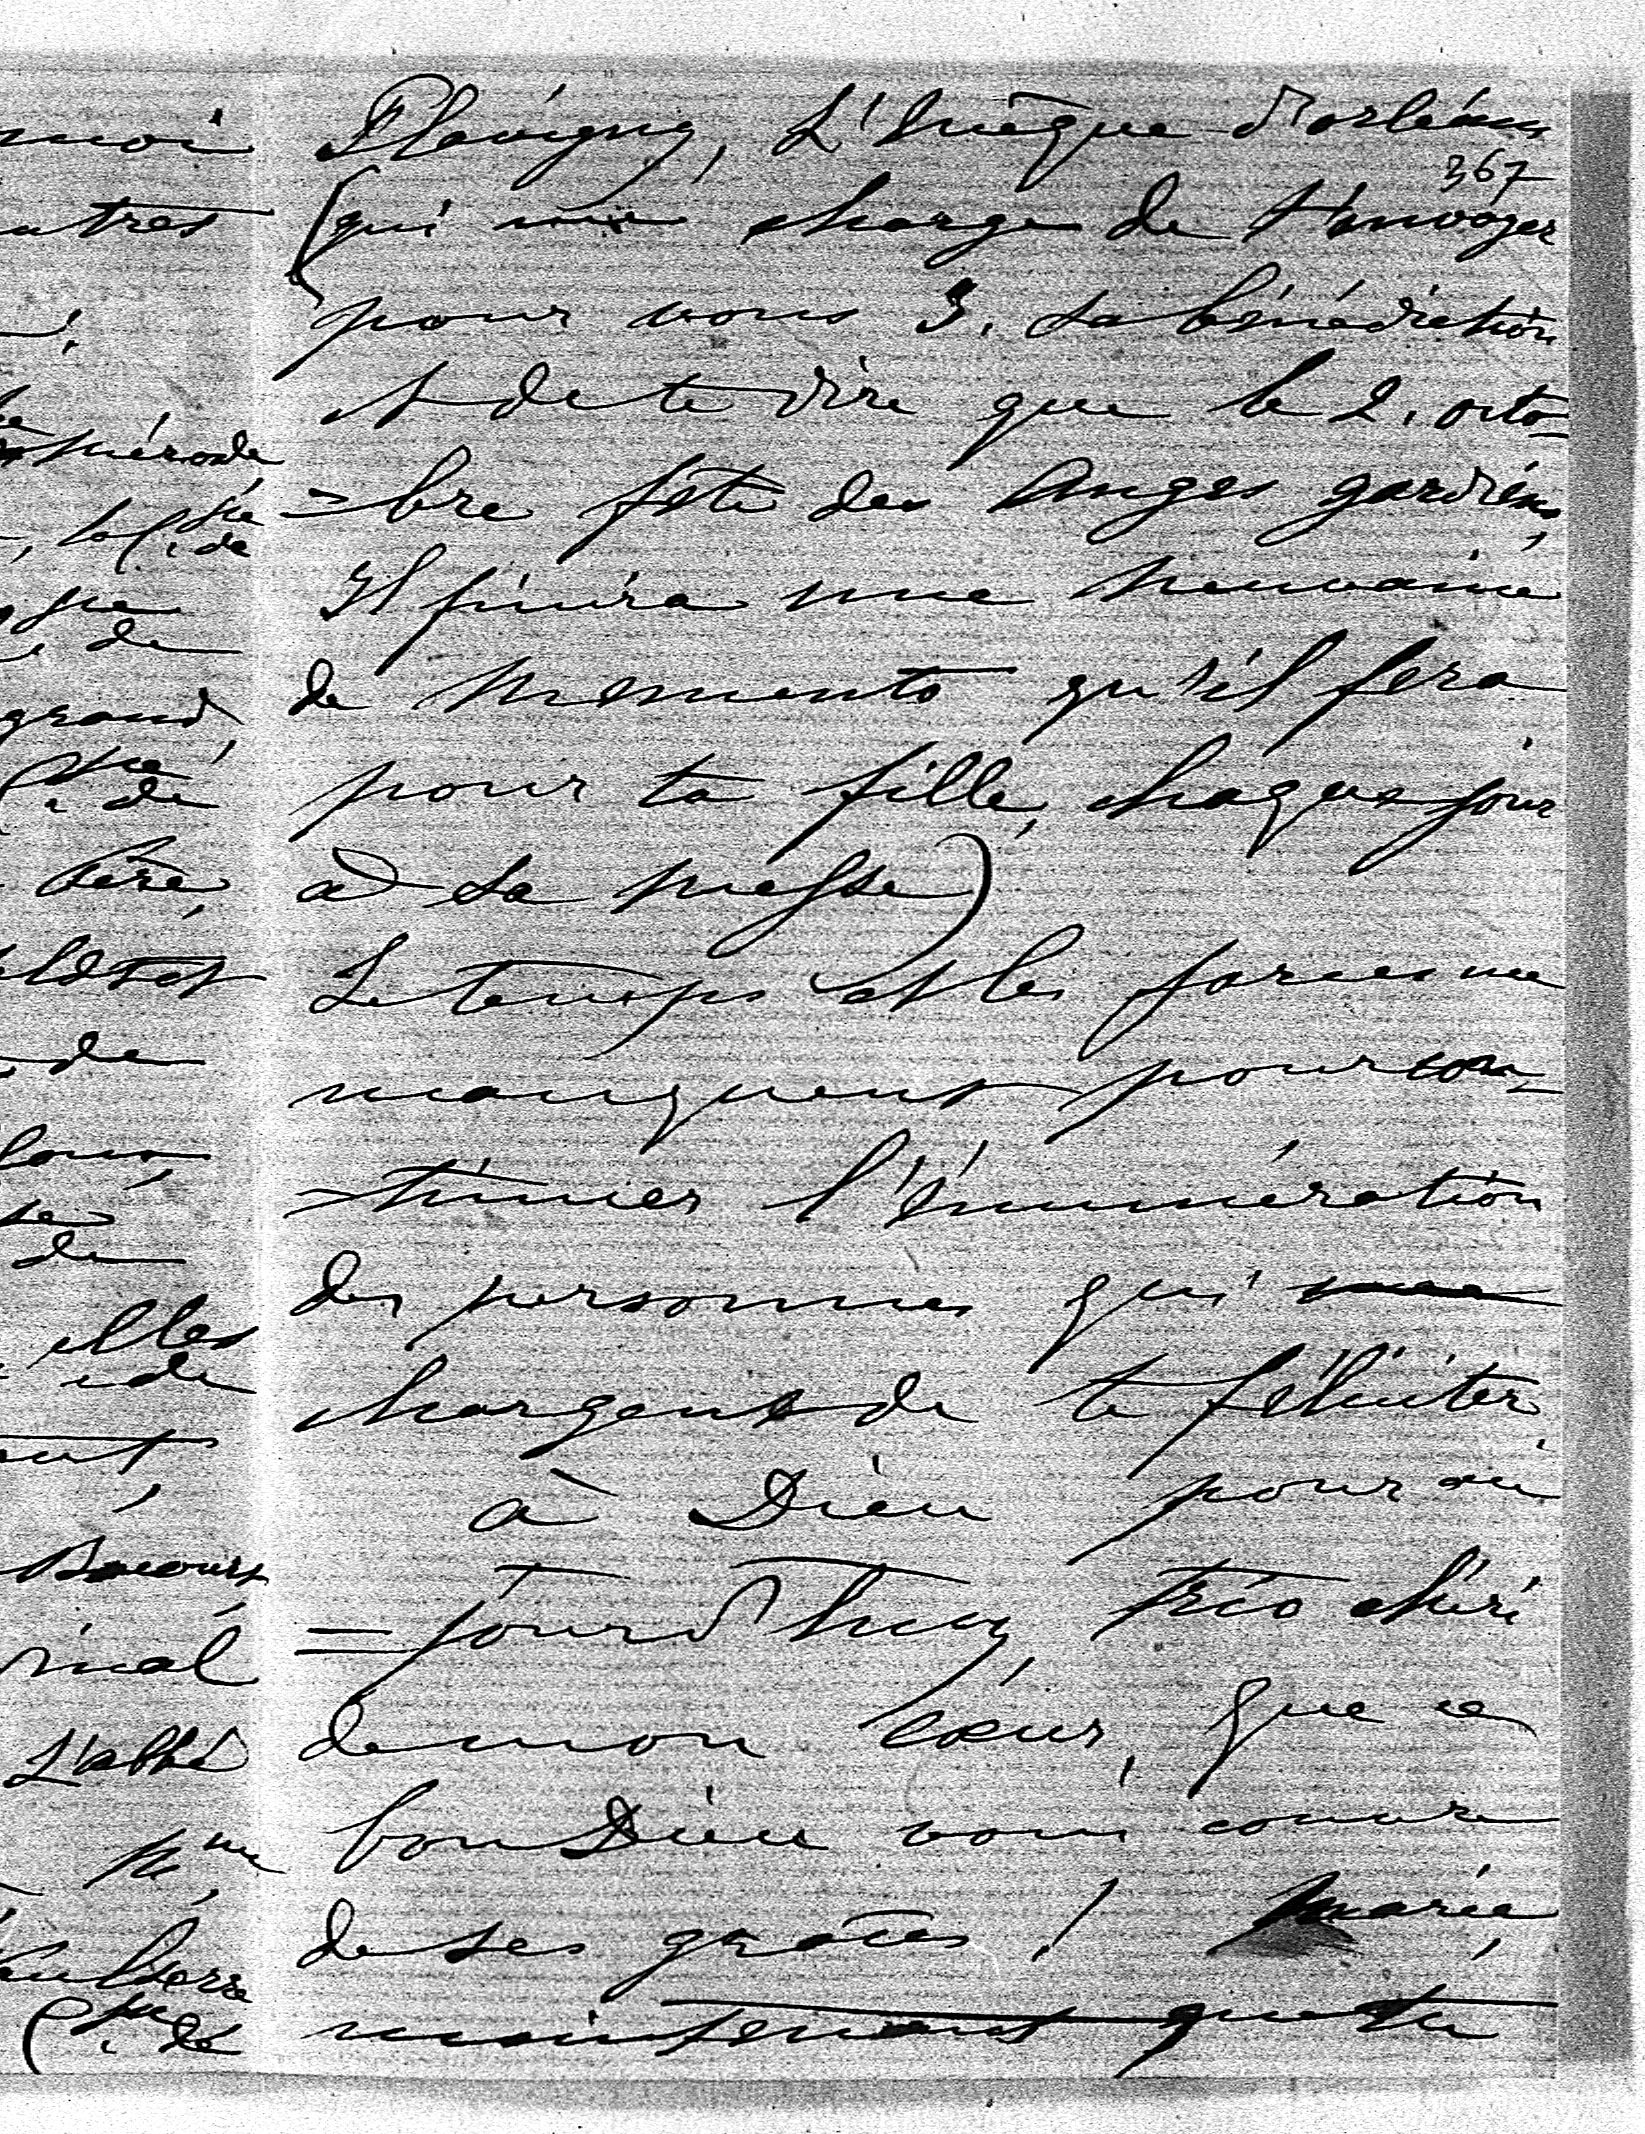 Flavigny, L'évêque d'orléans
367
(qui me charge de t'envoyer
pour vous 3. sa bénédiction
et de te dire que le 2. octo-
=bre fête des Anges gardiens,
Il finira une neuvaine
de memento qu'il fera
pour ta fille, chaque jour
à sa messe)
Le temps et les forces me
manquent pour con-
=tinuer l'énumération
des personnes qui me
chargent de te féliciter
à Dieu pour au
=jourd'huy trio chéri
de mon cœur, que ce
bon Dieu vous couvre
de ses grâces ! Marie,
maintenant que tu
moi
utres
Mérode
de
de
grand
de
de
elles
de
L'abbé
Mme
de